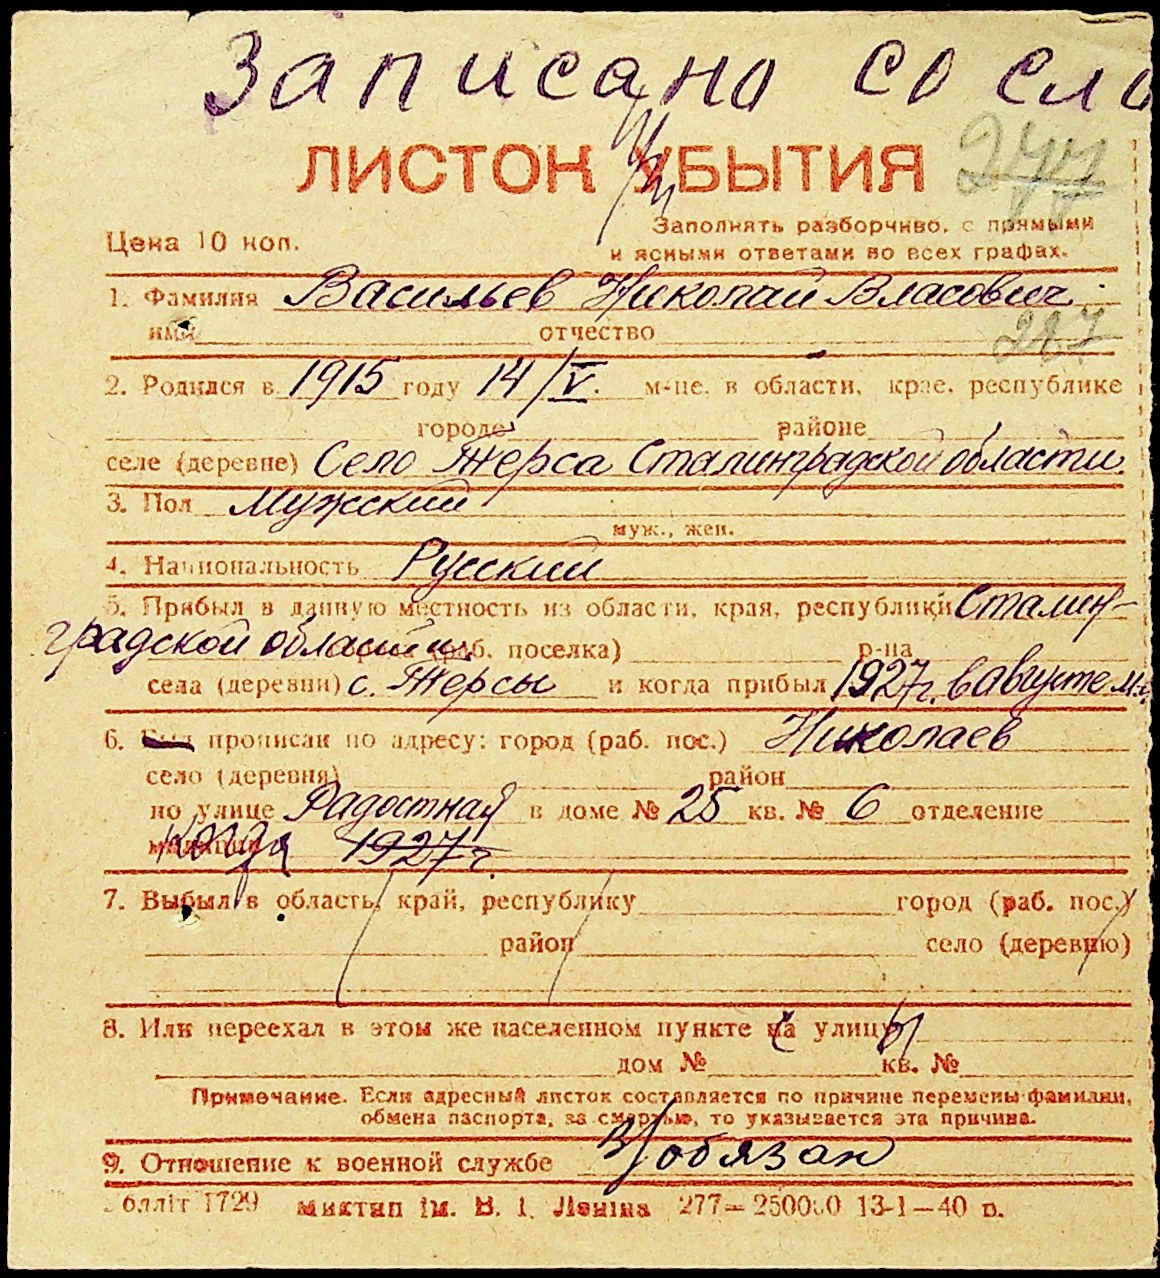 Записано со сло
ЛИСТОК УБЫТИЯ
Цена 10 коп.
Заполнять разборчиво, с прямыми
и ясными ответами во всех графах.
1. Фамилия Васильев Николай Власович
имя отчество
287
2. Родился в 1915 году 14/V. м-це, в области, крае, республике
городе районе
селе (деревне) Село Терса Сталинградской области
3. Пол Мужский
муж., жен.
4. Национальность Русский
5. Прибыл в данную местность из области, края, республики Сталин-
градской области (раб. поселка) р-на
села (деревни) с. Терсы и когда прибыл 1927г. в августе м-ц
6. Был прописан по адресу: город (раб. пос.) Николаев
село (деревня) район
по улице Радостная в доме № 25 кв. № 6 отделение
милиции Когда 1927г.
7. Выбыл в область, край, республику город (раб. пос.)
район село (деревню)
8. Или переехал в этом же населенном пункте на улицу
дом № кв. №
Примечание. Если адресный листок составляется по причине перемены фамилии,
обмена паспорта, за смертью, то указывается эта причина.
9. Отношение к военной службе В/обязан
Облліт 1729 Миктип ім. В. І. Леніна 277—250000 13-1—40 п.